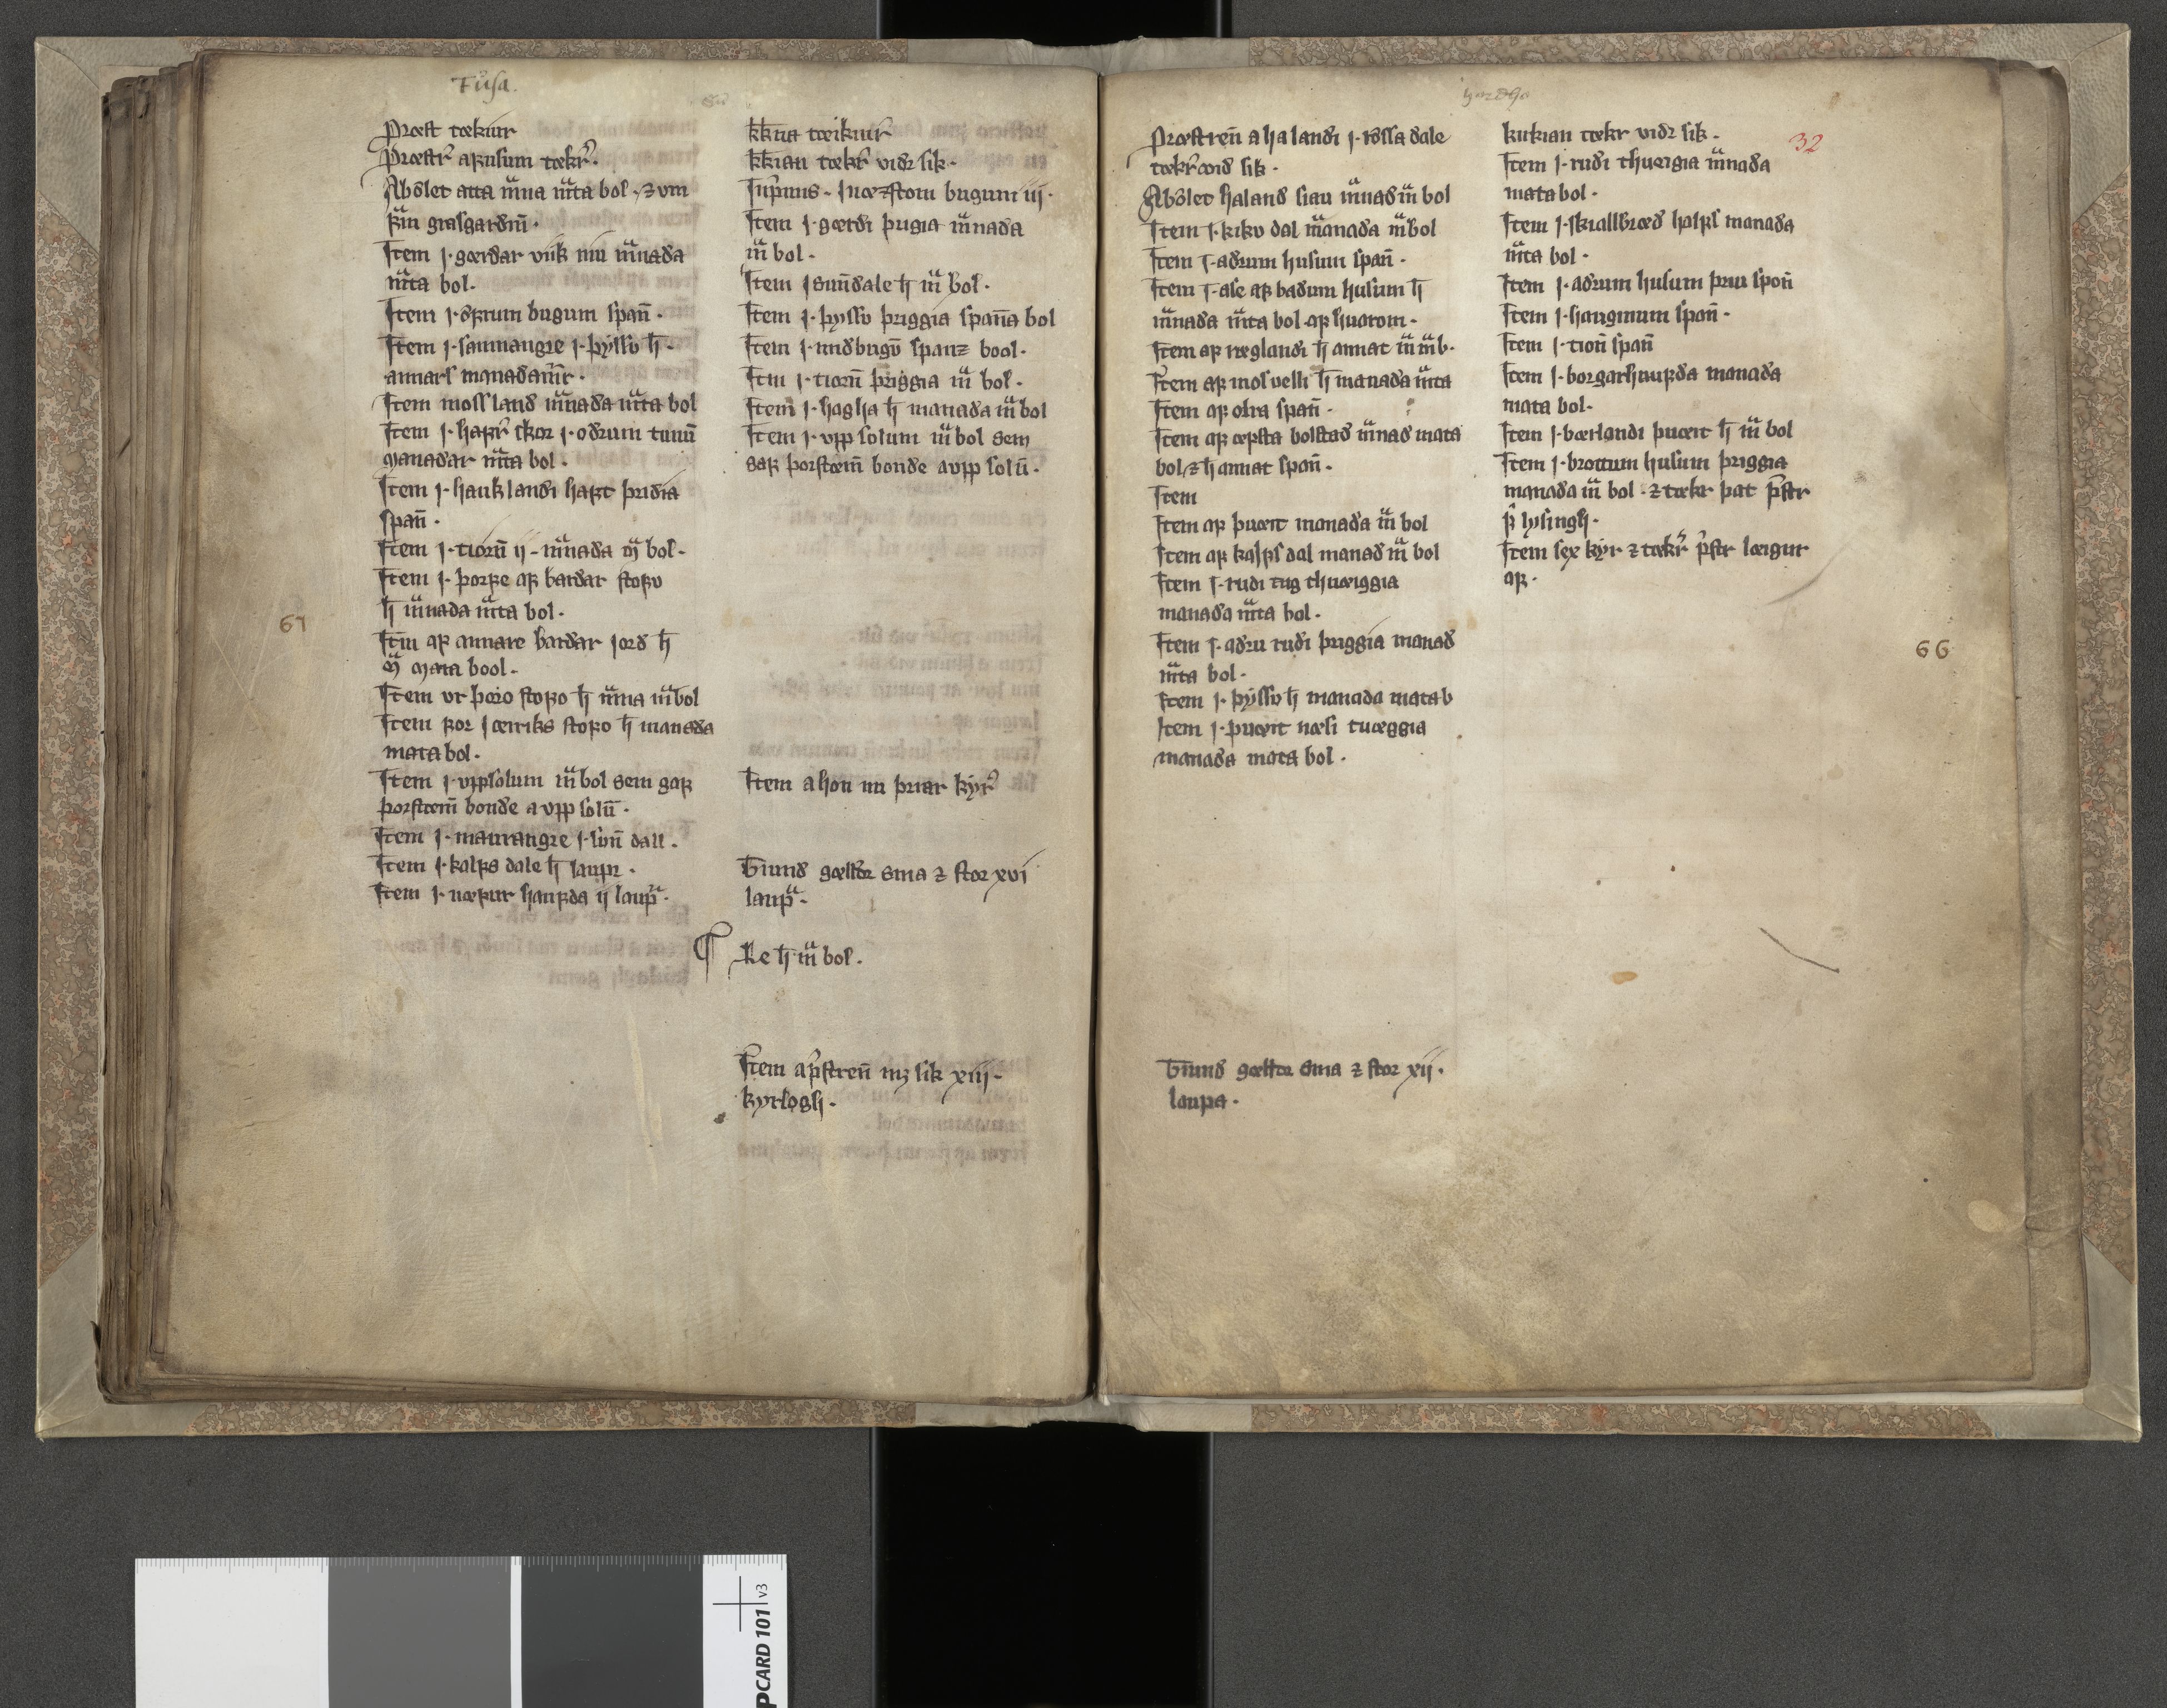 Fusa.
Præst tækiur
Præstr afusum tækr.
Abolet atta mana mata bol. ⁊ vm
kin grasgardm̄.
Item j. gærdar viik niu manada
mata bol.
Item j. ofrum bugum span̄.
Item j. saunangre j. þyssv ħ.
annars manadam̄r.
Item moss land manada mata bol
Item j. hafr skor j. odrum tunū
manadar mata bol.
Item j. hauklandi haft þridia
span̄.
Item j. tiorn̄ ij. manada m bol.
Item j. þorfe af bardar stofo
ħ manada mata bol.
Itm af annare bardar jord ħ
m mata bool.
Item vr þoro stofo ħ mana m bol
Item for jænriks stofo ħ manada
mata bol.
Item j. vppsolum m bol sem gaf
þorstem̄ bonde a vpp solū.
Item j. maurangre j. sun̄ dall.
Item j. kalfs dale ħ laupr.
Item j. næfur haufda ij laupa.
67
kkiua tæikiur
kkian tækr vidr sik.
Inp̄mis. j næzstom bugum iij.
Item j. gærdi þrigia manada
m bol.
Item j sun̄dale ħ m bol.
Item j. þyssv þriggia span̄a bol
Item j. midbugū spanz bool.
Itm j. tiorn̄ þriggia m bol.
Item j. hagha ħ manada m bol
Item j. vpp solum m bol sem
gaf þorstæin̄ bonde a vpp solū.
Item a hon nu þriar kyr
Grund gælldr sma ⁊ stor xvi
laupa.
¶ Re ħ m bol.
Item a p̄stren̄ mz sik xiij.
kyrlogh.
hordhe
32
Præstren̄ a halandi j. rossa dale
tækr vid sik.
Abolet haland siau manad m bol
Item j. kikv dal manada m bol
Item j. adrum husum span̄.
Item j. ase af badum husum ħ
manada mata bol af huarom.
Item af næglandi ħ annat m m b.
Item af mosuelli ħ manada mata
Item af olra span̄.
Item af æfsta bolstad manad mata
bol ⁊ ħ annat span̄.
Item
Item af þuæit manada m bol
Item af kalfs dal manad m bol
Item j. rudi tug thuæiggia
manada mata bol.
Item j. adru rudi þriggia manad
mata bol.
Item j. þyssv ħ manada mata b
Item j. þuæit næsi tuæggia
manada mata bol.
Grund gælldr sma ⁊ stor xij.
laupa.
kirkian tækr vidr sik.
Item j. rudi thueigia manada
mata bol.
Item j. skiallbræd halfs manada
mata bol.
Item j. adrum husum þriu spon̄
Item j. haugmum span̄.
Item j. tion̄ span̄
Item j. borgarhaufda manada
mata bol.
Item j. bærlandi þuæit ħ m bol
Item j. brottum husum þriggia
manada m bol. ⁊ tækr þat p̄str
f̄ lysingh.
Item sex kyr ⁊ tækr p̄str læigur
af.
66
PCARD 101 v3